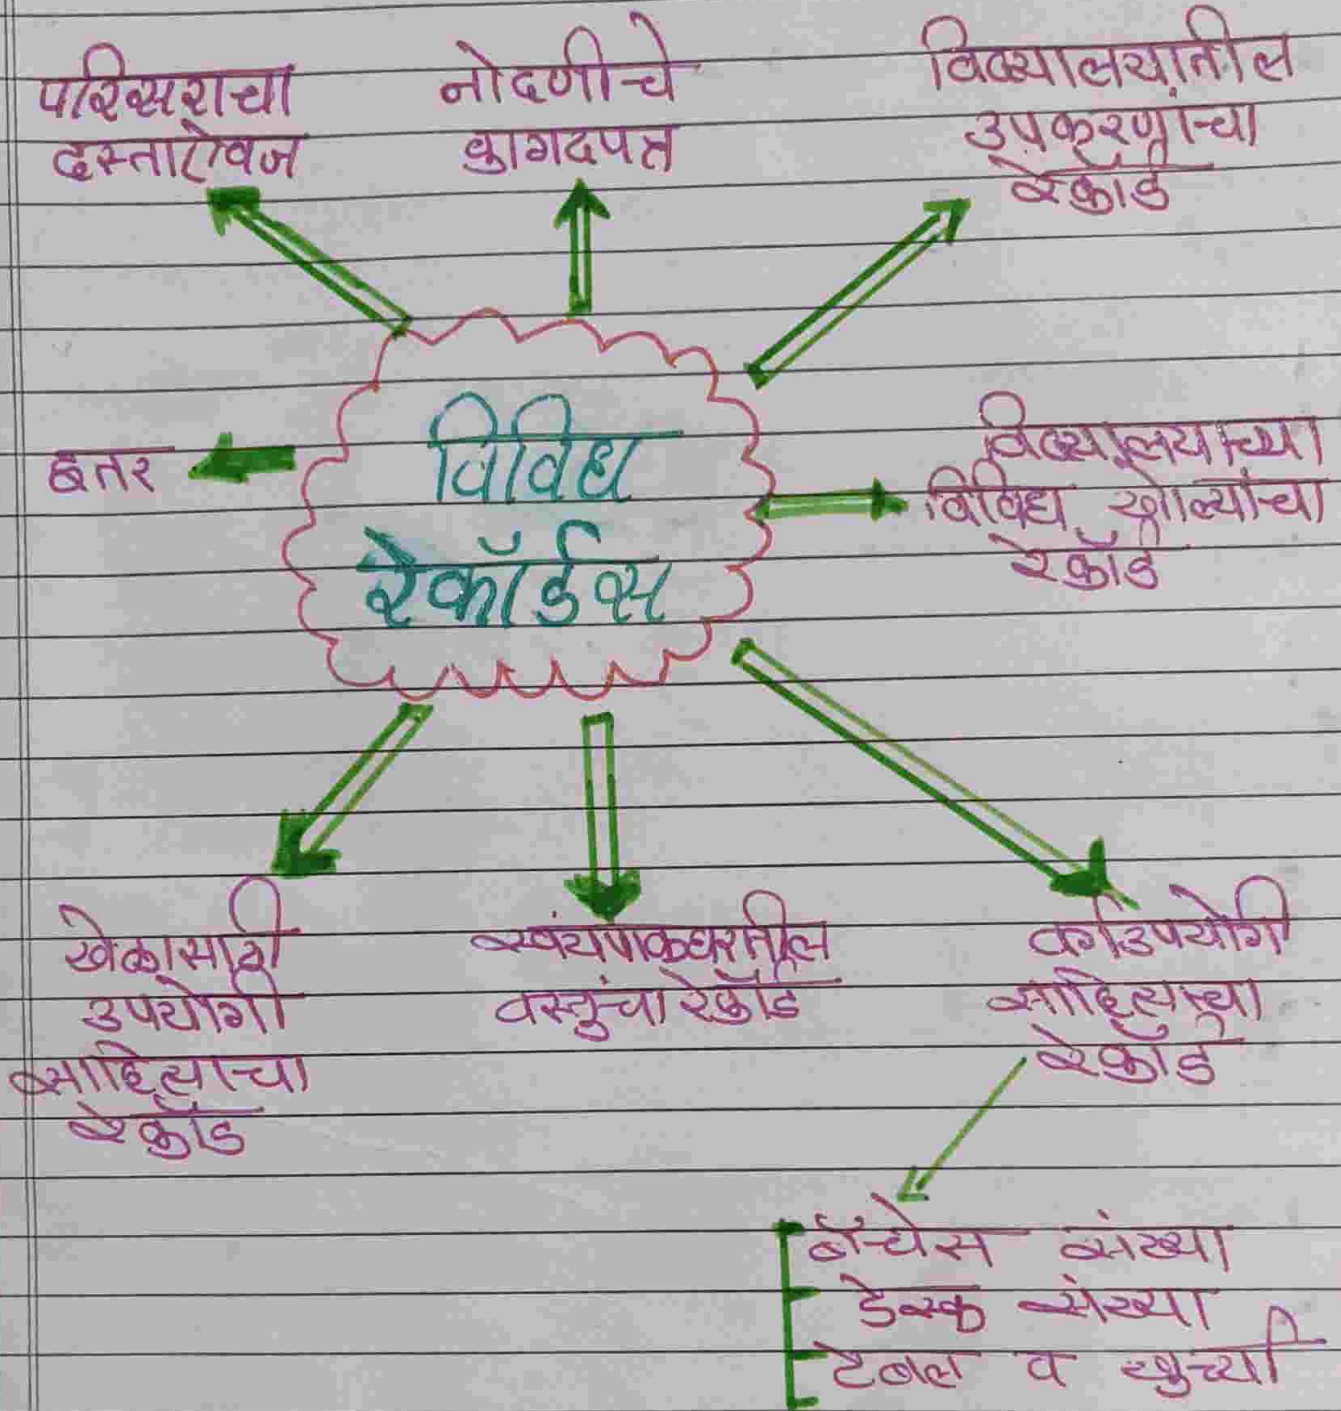 परिसराचा
दस्ताऐवज
नोदणीचे
कागदपत्र
विद्यालयातील
उपकरणांचा
रेकॉर्ड
इतर
विविध
रेकॉर्डस
विद्यालयाच्या
विविध खोल्यांचा
रेकॉर्ड
खेळासाठी
उपयोगी
साहित्याचा
रेकॉर्ड
स्वयंपाकघरातील
वस्तुंचा रेकॉर्ड
वर्गउपयोगी
साहित्याचा
रेकॉर्ड
बॅन्चेस संख्या
डेस्क संख्या
टेबल व खुर्च्या